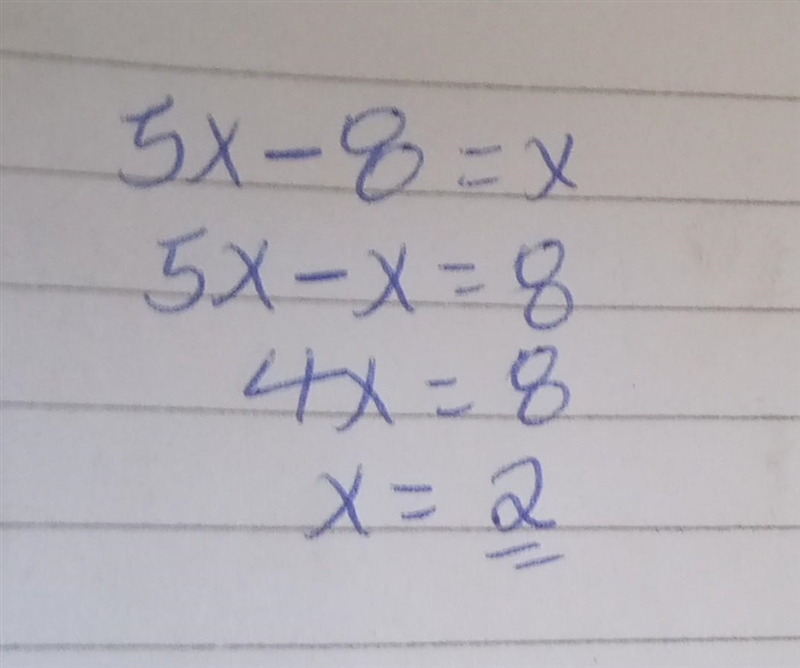 5x - 8 = x
5x - x = 8
4x = 8
x = 2